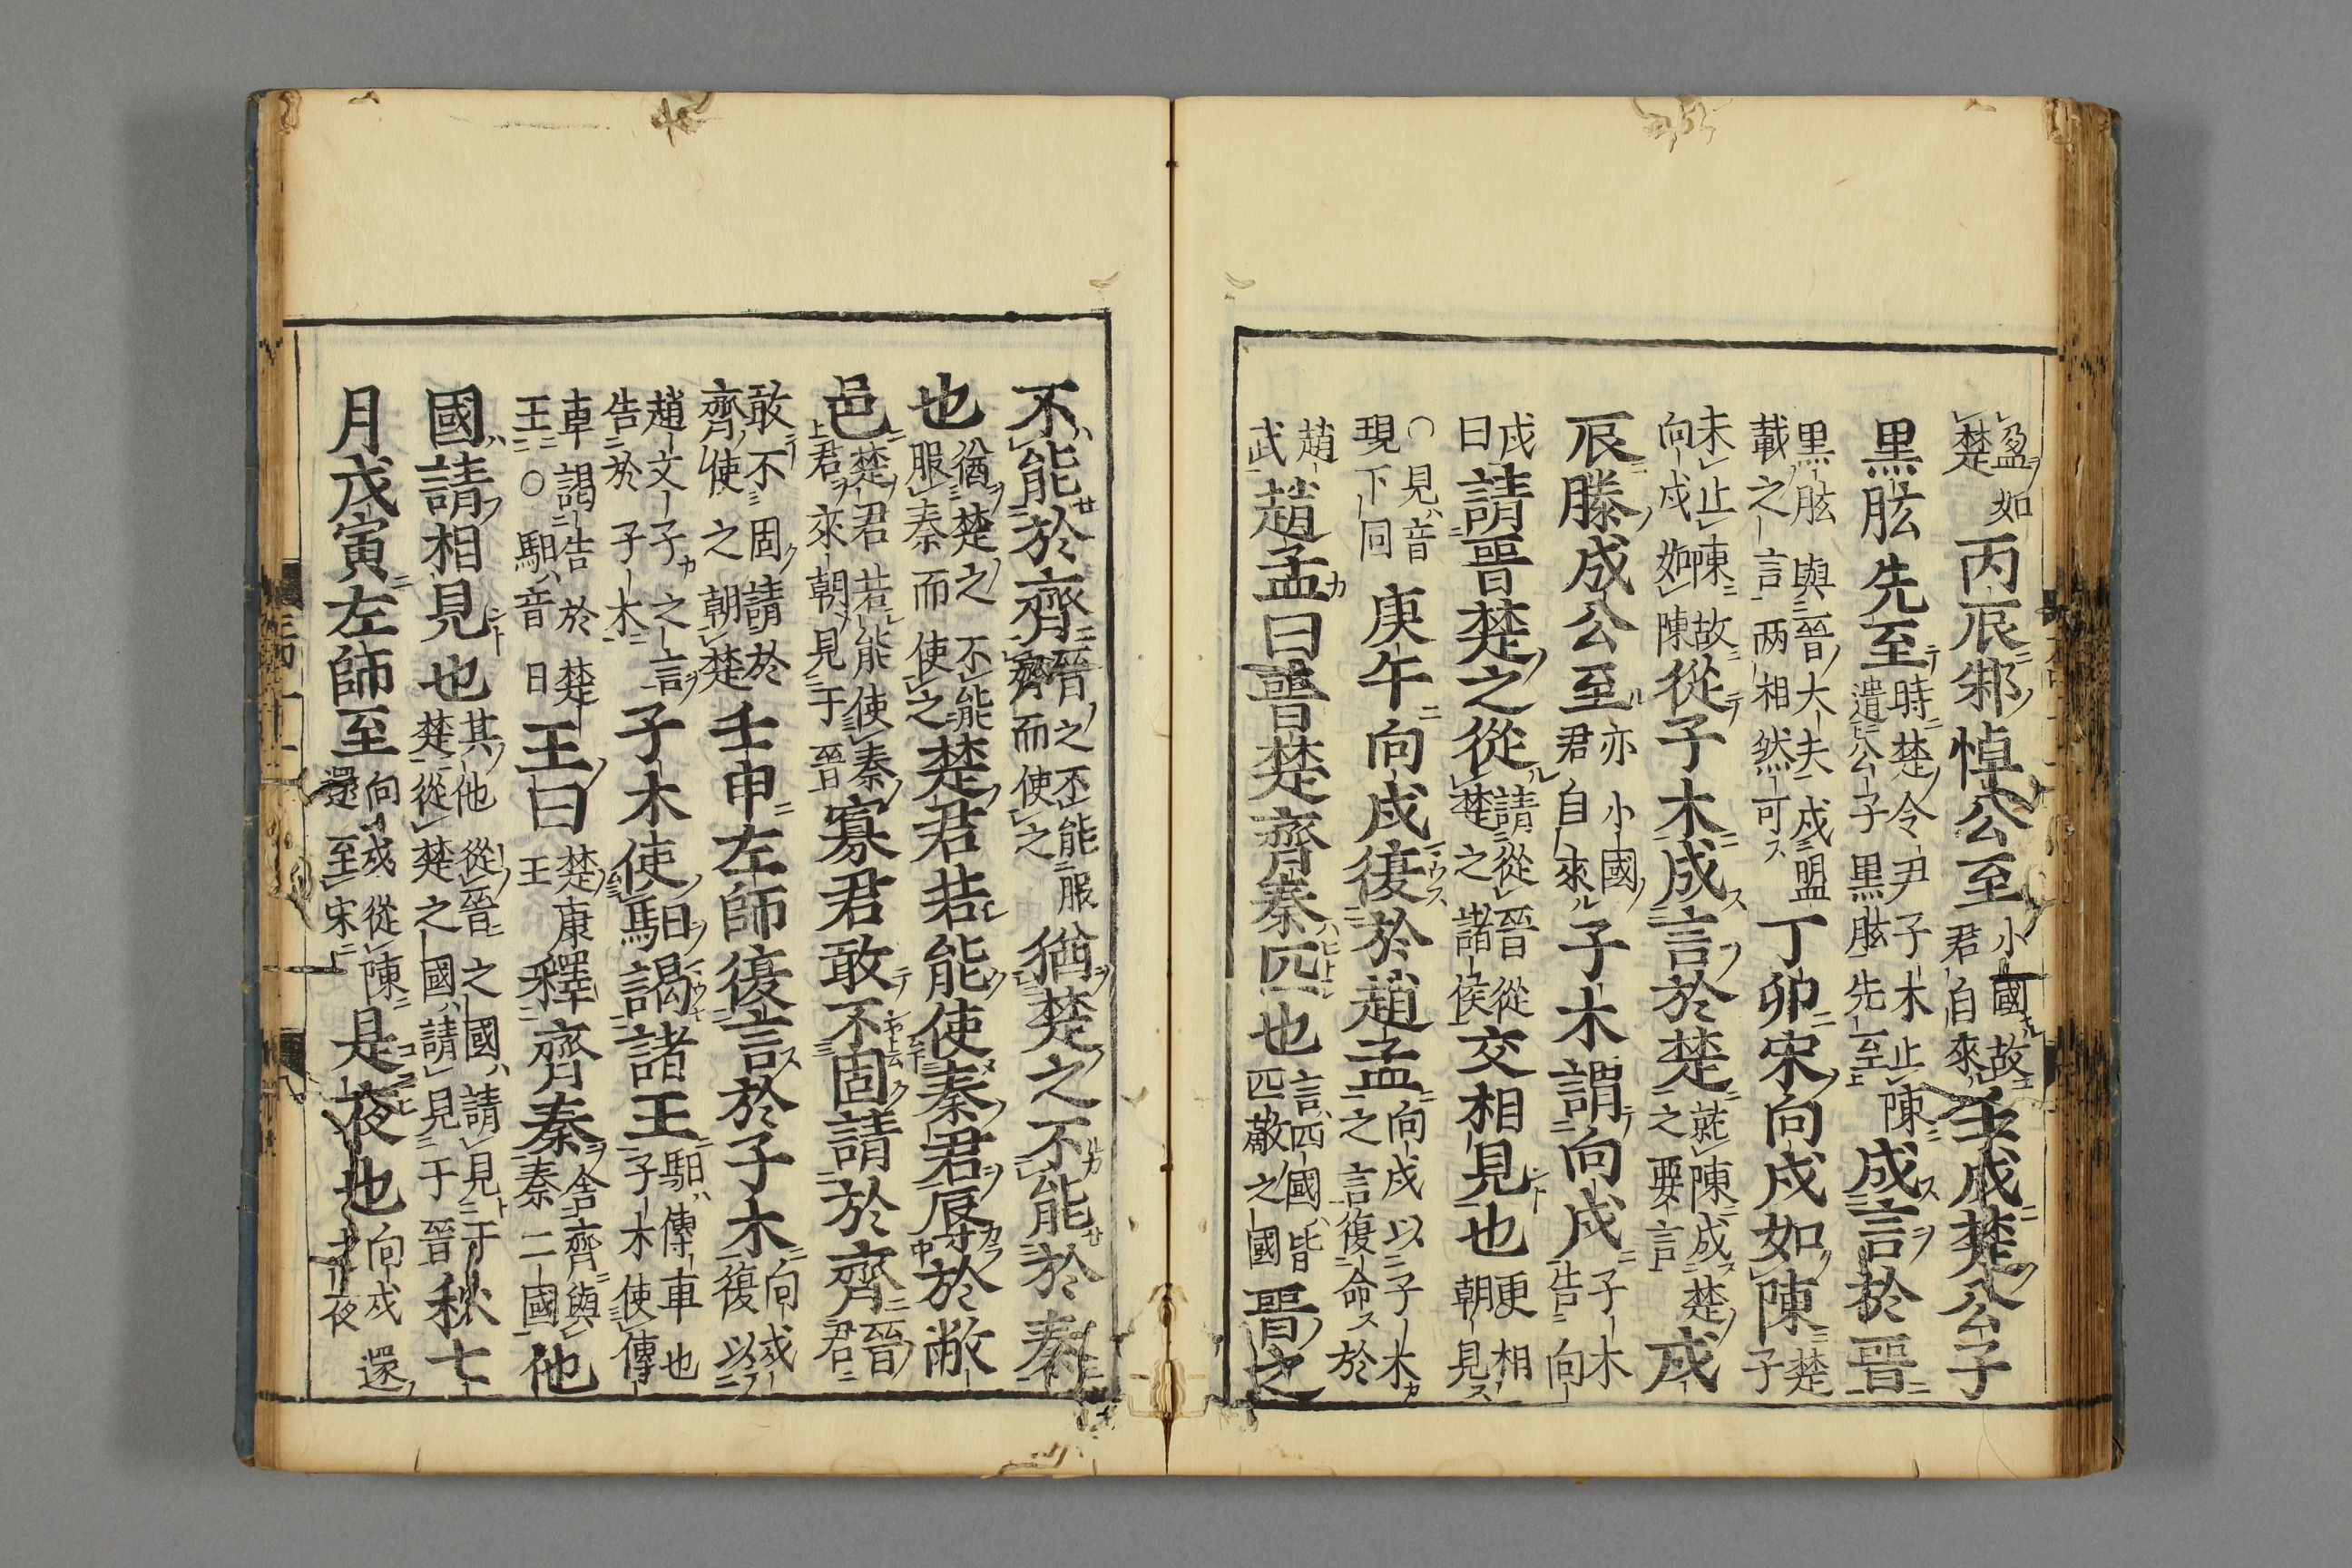 盈如楚丙辰邾悼公至小國故君自來壬戌楚公子
黒肱先至時楚令尹子木止陳遣公子黒肱先至成言於晉
黒肱與晉大夫成盟載之言兩相然可丁卯宋向戌如陳楚子
未止陳故向戌如陳從子木成言於楚就陳成楚之要言戊
辰滕成公至亦小國君自來子木謂向戌子木告向
戌請晉楚之從請從晉從楚之諸侯交相見也更相朝見
曰〇見音現下同庚午向戌復於趙孟向戌以子木之言復命於
趙武趙孟曰晉楚齊秦匹也言四國皆匹敵之國晉之
不能於齊晉之不能服齊而使之猶楚之不能於秦
也猶楚之不能服秦而使之楚君若能使秦君辱於敝
邑楚君若能使秦君來朝見于晉寡君敢不固請於齊晉君
敢不固請於齊使之朝楚壬申左師復言於子木向戌復以
趙文子之言告於子木子木使馹謁諸王馹傳車也子木使傳
車謁告於楚王〇馹音日王曰楚康王釋齊秦舍齊與秦二國他
國請相見也其他從晉之國請見于楚從楚之國請見于晉秋七
月戊寅左師至向戌從陳還至宋是夜也向戌還之夜